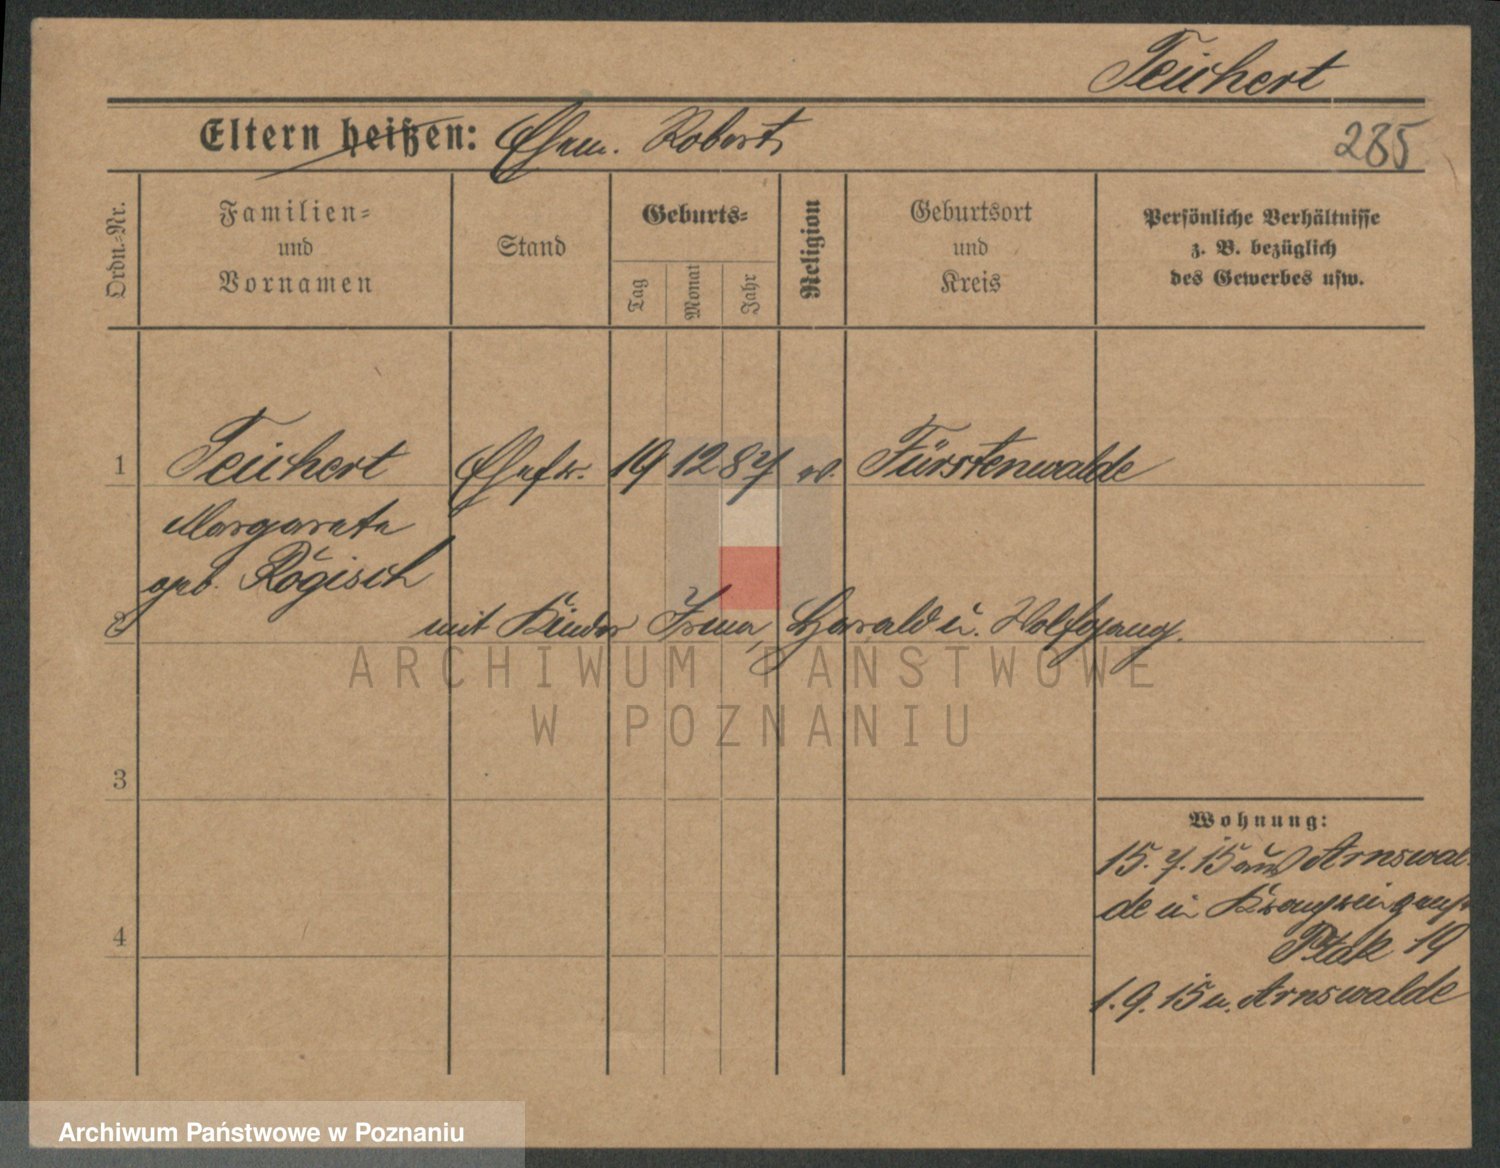 Teichert
Eltern heißen: Ehem. Robert
285
Ordn.-Nr.
Familien-
und
Vornamen
Stand
Geburts-
Tag
Monat
Jahr
Religion
Geburtsort
und
Kreis
Persönliche Verhältnisse
z. B. bezüglich
des Gewerbes usw.
1 Teichert Ehefr. 19 12 87 ev. Fürstenwalde
Margarete
geb. Rögisch
2 mit Kinder Irma, Harald u. Wolfgang.
ARCHIWUM PAŃSTWOWE
W POZNANIU
3
Wohnung:
15.7.15 aus Arnswal
de in
4
19
1.9.15 n. Arnswalde
Archiwum Państwowe w Poznaniu